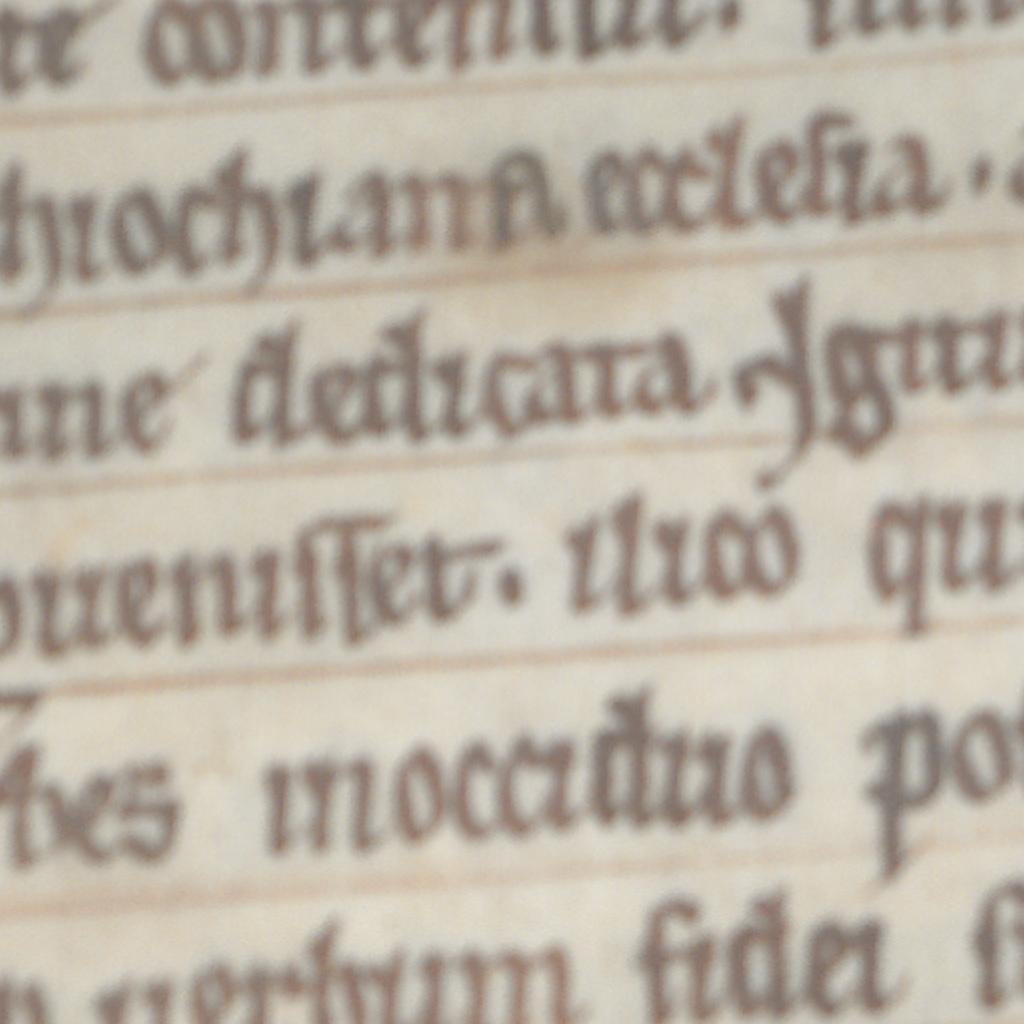 te contentur.
thiochiana ecclesia .
ane dedicata Igitu
ouenisset. ilico qu
bes inocciduo po
uerbum fidei